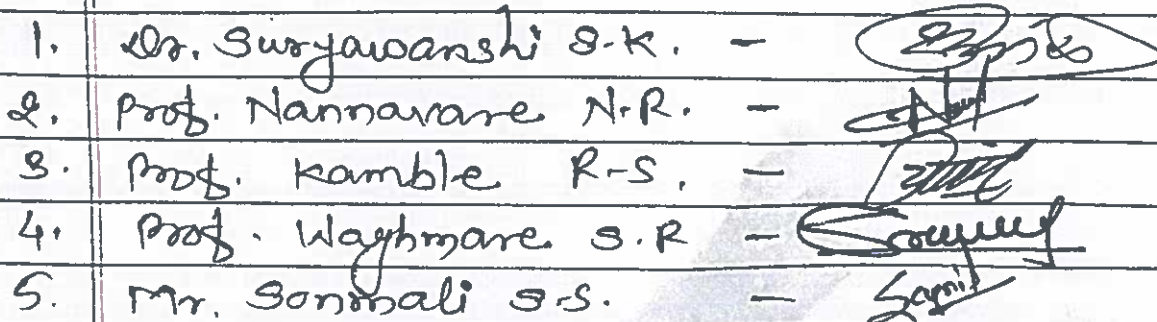 1. Dr. Suryawanshi S.K. -
2. Prof. Nannavare N.R. -
3. Prof. Kamble R.S. -
4. Prof. Waghmare S.R -
5. Mr. Sonmali S.S. -